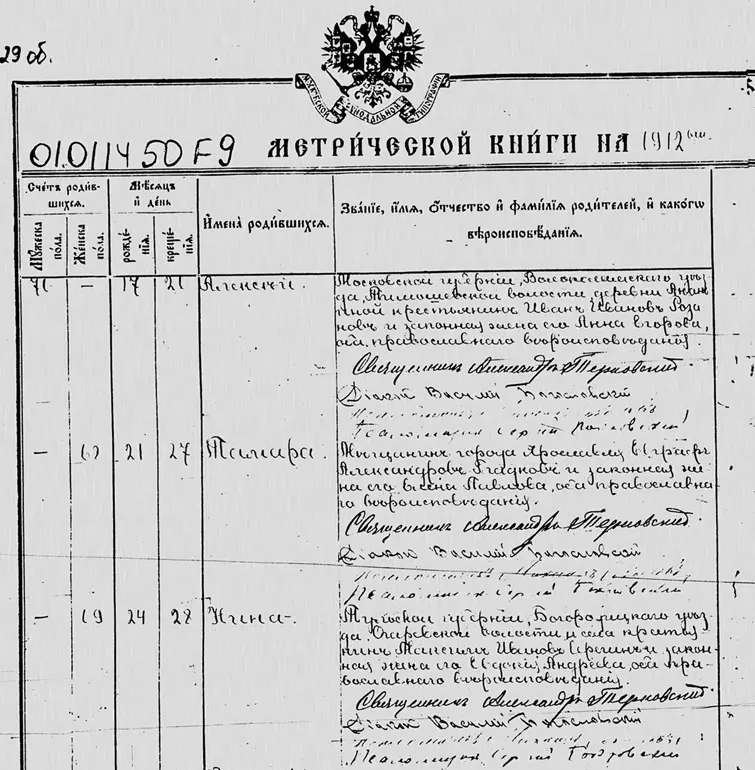 29 об.
МОСКОВСКОЙ СѴНОДАЛЬНОЙ ТИПОГРАФІИ
01.011450 F9 МЕТРИ́ЧЕСКОЙ КНИ́ГИ НА 1912
Сче́тъ роди́вшихся.
Му́жеска по́ла.
Же́нска по́ла.
Мѣ́сяцъ и́ день
рожде́нїя.
креще́нїя.
И҆мена̀ роди́вшихся.
Зва́нїе, и҆́мя, ѻ҆́тчество и҆ фами́лїя роди́телей, и҆ какѡ́гѡ вѣроисповѣ́данїя.
71 — 17 21 Алексѣй.
Московской губерніи, Волоколамскаго уѣз
да, Тимошевской волости, деревни
крестьянинъ Иванъ Ивановъ Роза
новъ и законная жена его Анна Егорова,
оба православнаго вѣроисповѣданія.
Священникъ Александръ Терновскій
Діаконъ Василій
Псаломщикъ Сергій
— 21 27 Тамара.
Мѣщанинъ города Ярославля
Александровъ и законная же
на его Елена Павлова, оба православна
го вѣроисповѣданія.
Священникъ Александръ Терновскій.
Діаконъ Василій
Псаломщикъ Сергій
— 69 24 28 Нина.
Тульской губерніи, Богородицкаго уѣз
да, волости и села кресть
нинъ Максимъ Ивановъ и закон
ная жена его Андреева, оба пра
вославнаго вѣроисповѣданія.
Священникъ Александръ Терновскій
Діаконъ Василій
Псаломщикъ Сергій